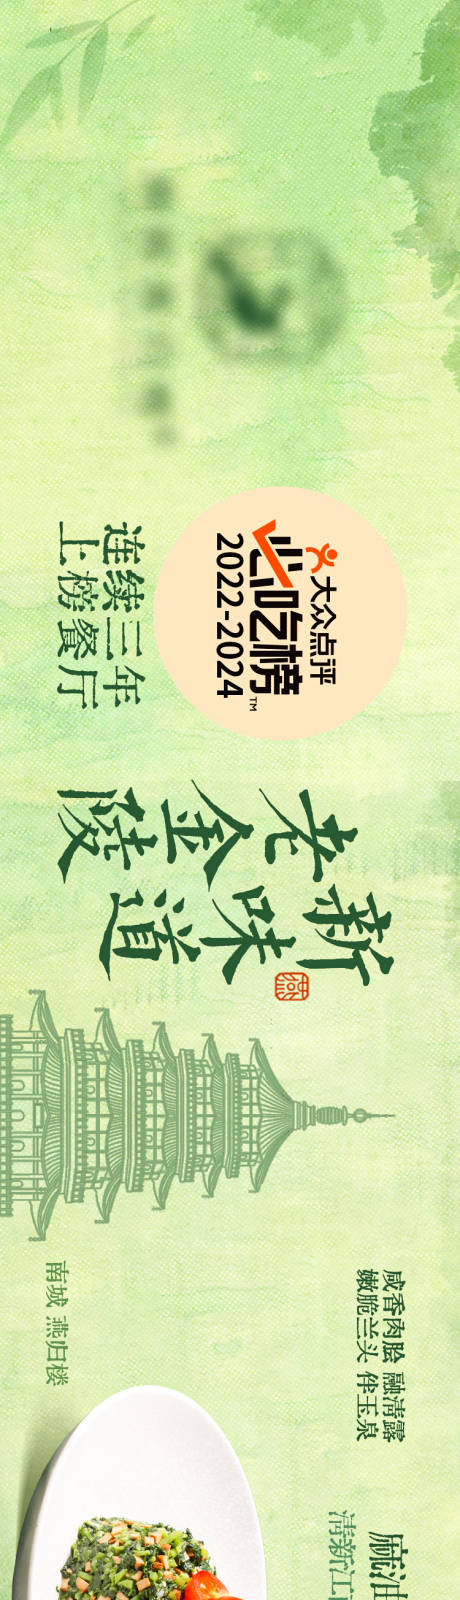 大众点评
必吃榜™
2022-2024
连续三年
上榜餐厅
老金陵
新味道
南城 燕归楼
咸香肉脍 融清露
嫩脆兰头 伴玉泉
麻油
清新江